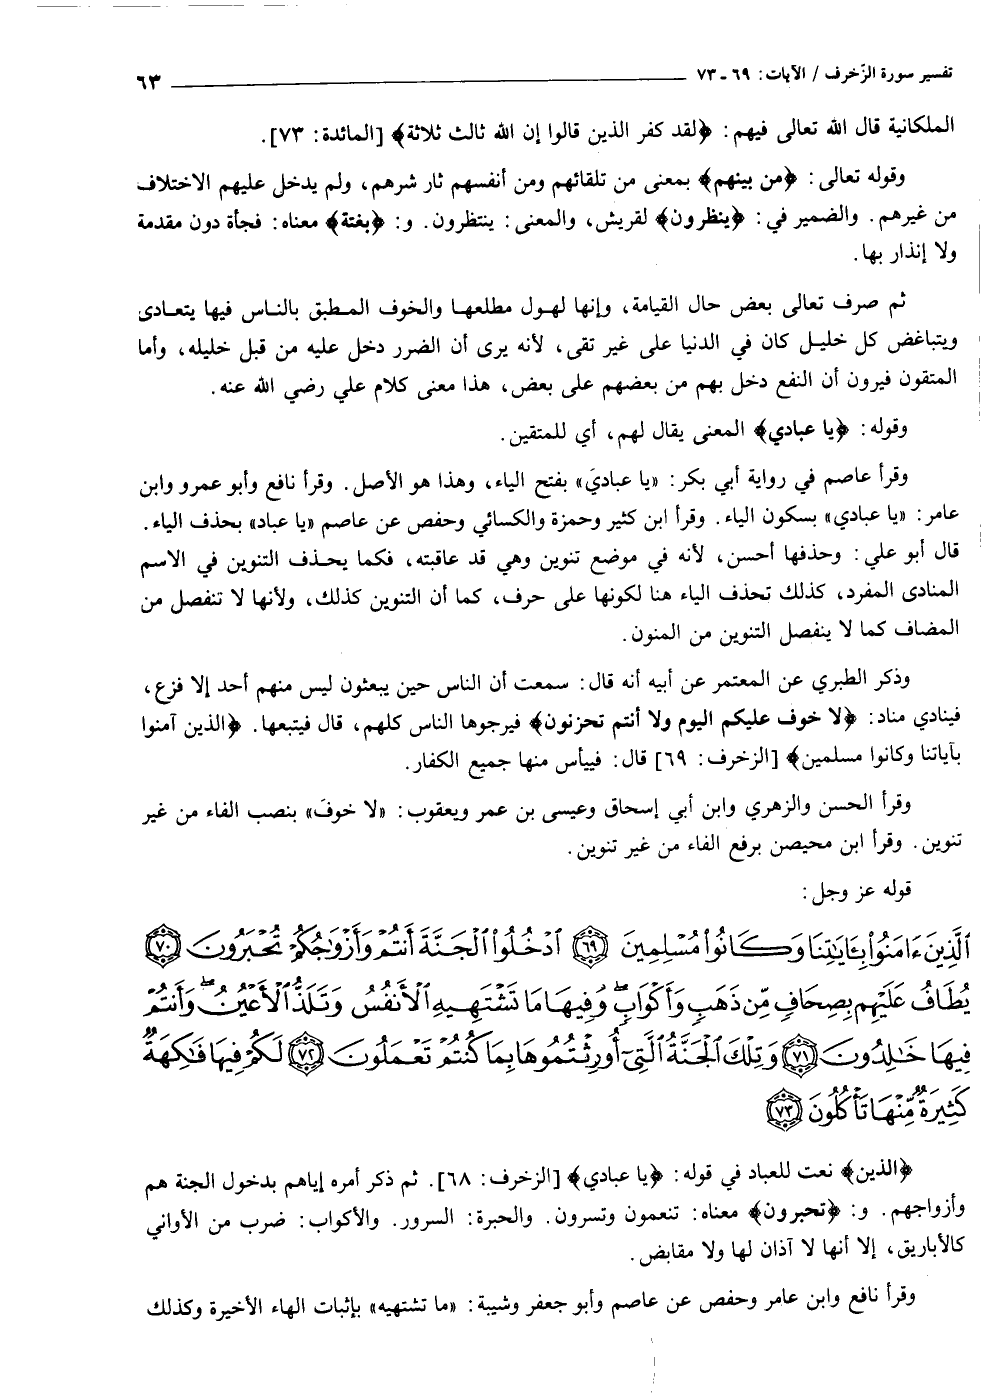 تفسير سورة الزّخرف / الآيات: ٦٩ - ٧٣ ٦٣
الملكانية قال الله تعالى فيهم: ﴿لقد كفر الذين قالوا إن الله ثالث ثلاثة﴾ [المائدة: ٧٣].
وقوله تعالى: ﴿من بينهم﴾ بمعنى من تلقائهم ومن أنفسهم ثار شرهم، ولم يدخل عليهم الاختلاف
من غيرهم. والضمير في: ﴿ينظرون﴾ لقريش، والمعنى: ينتظرون. و: ﴿بغتة﴾ معناه: فجأة دون مقدمة
ولا إنذار بها.
ثم صرف تعالى بعض حال القيامة، وإنها لهول مطلعها والخوف المطبق بالناس فيها يتعادى
ويتباغض كل خليل كان في الدنيا على غير تقى، لأنه يرى أن الضرر دخل عليه من قبل خليله، وأما
المتقون فيرون أن النفع دخل بهم من بعضهم على بعض، هذا معنى كلام علي رضي الله عنه.
وقوله: ﴿يا عبادي﴾ المعنى يقال لهم، أي للمتقين.
وقرأ عاصم في رواية أبي بكر: «يا عباديَ» بفتح الياء، وهذا هو الأصل. وقرأ نافع وأبو عمرو وابن
عامر: «يا عبادي» بسكون الياء. وقرأ ابن كثير وحمزة والكسائي وحفص عن عاصم «يا عباد» بحذف الياء.
قال أبو علي: وحذفها أحسن، لأنه في موضع تنوين وهي قد عاقبته، فكما يحذف التنوين في الاسم
المنادى المفرد، كذلك تحذف الياء هنا لكونها على حرف، كما أن التنوين كذلك، ولأنها لا تنفصل من
المضاف كما لا ينفصل التنوين من المنون.
وذكر الطبري عن المعتمر عن أبيه أنه قال: سمعت أن الناس حين يبعثون ليس منهم أحد إلا فزع،
فينادي مناد: ﴿لا خوف عليكم اليوم ولا أنتم تحزنون﴾ فيرجوها الناس كلهم، قال فيتبعها. ﴿الذين آمنوا
بآياتنا وكانوا مسلمين﴾ [الزخرف: ٦٩] قال: فييأس منها جميع الكفار.
وقرأ الحسن والزهري وابن أبي إسحاق وعيسى بن عمر ويعقوب: «لا خوفَ» بنصب الفاء من غير
تنوين. وقرأ ابن محيصن برفع الفاء من غير تنوين.
قوله عز وجل:
ٱلَّذِينَ ءَامَنُوا۟ بِـَٔايَـٰتِنَا وَكَانُوا۟ مُسْلِمِينَ ٦٩ ٱدْخُلُوا۟ ٱلْجَنَّةَ أَنتُمْ وَأَزْوَٰجُكُمْ تُحْبَرُونَ ٧٠
يُطَافُ عَلَيْهِم بِصِحَافٍ مِّن ذَهَبٍ وَأَكْوَابٍ ۖ وَفِيهَا مَا تَشْتَهِيهِ ٱلْأَنفُسُ وَتَلَذُّ ٱلْأَعْيُنُ ۖ وَأَنتُمْ
فِيهَا خَـٰلِدُونَ ٧١ وَتِلْكَ ٱلْجَنَّةُ ٱلَّتِىٓ أُورِثْتُمُوهَا بِمَا كُنتُمْ تَعْمَلُونَ ٧٢ لَكُمْ فِيهَا فَـٰكِهَةٌ
كَثِيرَةٌ مِّنْهَا تَأْكُلُونَ ٧٣
﴿الذين﴾ نعت للعباد في قوله: ﴿يا عبادي﴾ [الزخرف: ٦٨]. ثم ذكر أمره إياهم بدخول الجنة هم
وأزواجهم. و: ﴿تحبرون﴾ معناه: تنعمون وتسرون. والحبرة: السرور. والأكواب: ضرب من الأواني
كالأباريق، إلا أنها لا آذان لها ولا مقابض.
وقرأ نافع وابن عامر وحفص عن عاصم وأبو جعفر وشيبة: «ما تشتهيه» بإثبات الهاء الأخيرة وكذلك